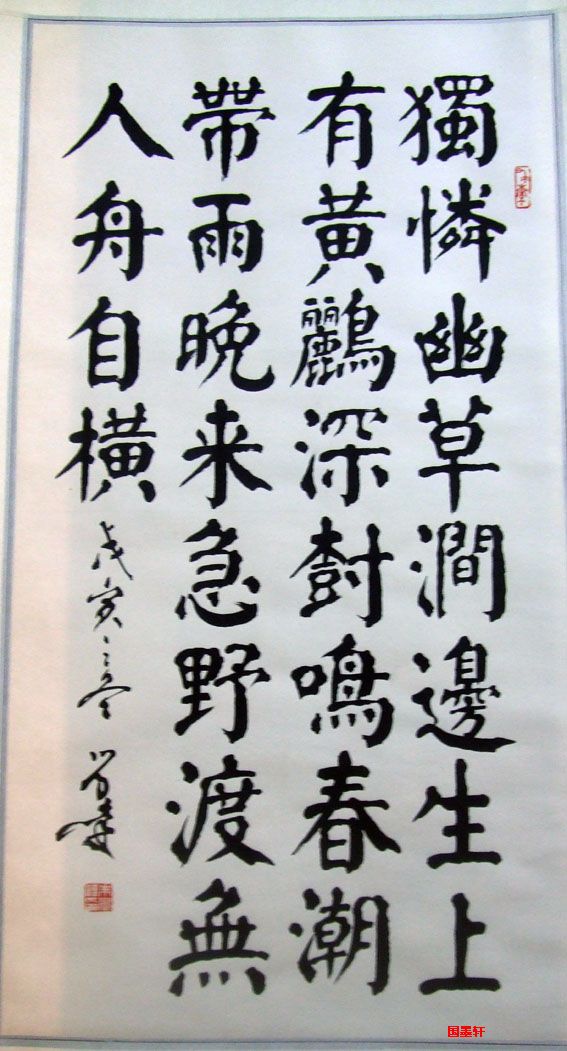 獨憐幽草澗邊生上
有黄鸝深樹鳴春潮
帶雨晚来急野渡無
人舟自橫
戊寅之冬
国墨轩